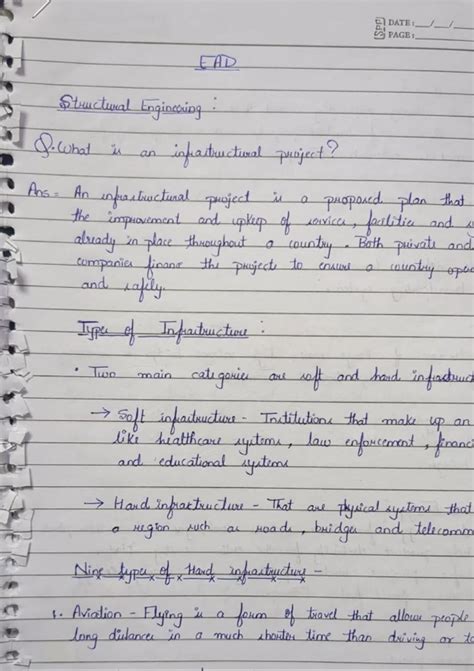 DATE: __/__/__
PAGE:
EAD
Structural Engineering :
Q. What is an infrastructural project?
Ans = An infrastructural project is a proposed plan that
the improvement and upkeep of services, facilities and
already in place throughout a country. Both private and
companies finans the projects to ensure a country
and safely.
Types of Infrastructure :
• Two main categories are soft and hard
→ Soft infrastructure - Institutions that make up an
like healthcare systems, law enforcement,
and educational systems
→ Hard infrastructure - That are physical systems that
a region such as roads, bridges and
Nine types of Hard infrastructure -
1. Aviation - Flying is a form of travel that allows people
long distances in a much shorter time than driving or